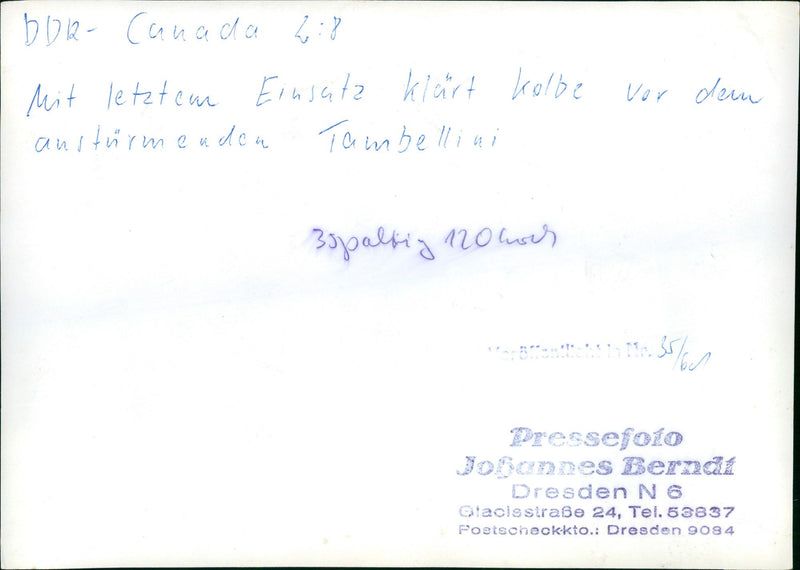 DDR - Canada 2:8
Mit letztem Einsatz klärt Kolbe vor dem
anstürmenden Tambellini
3spaltig 120 hoch
Veröffentlicht in Nr. 35/61
Pressefoto
Johannes Berndt
Dresden N 6
Glacisstraße 24, Tel. 53837
Postscheckkto.: Dresden 9084